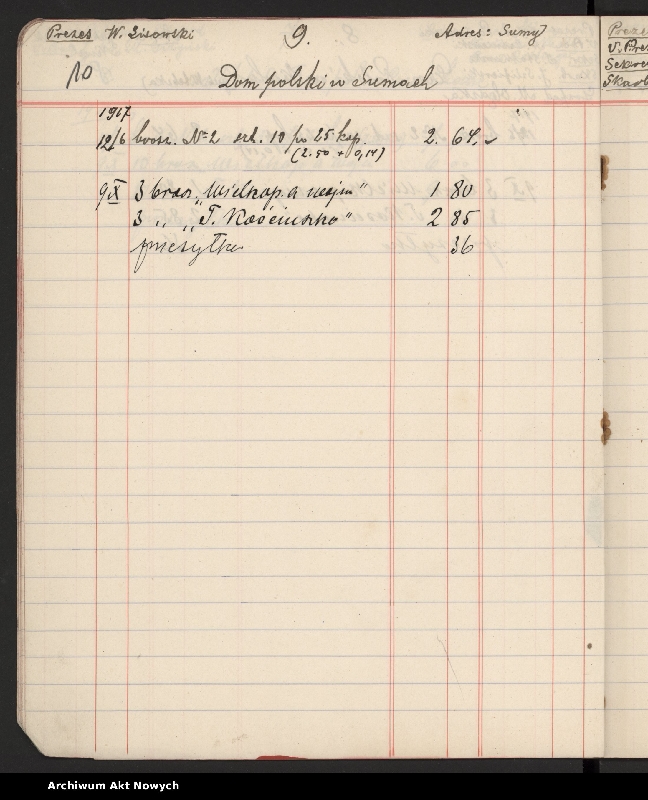 Prezes W. Lisowski
9.
Adres: Sumy
10
Dom polski w Sumach
1917
12/6 brosz. № 2 szt. 10 po 25 kop. 2. 64.
(2.50 + 0,14)
9 IX 3 bros. „Wielkop. a wojna" 1 80
3 „ „T. Kościuszko" 2 85
przesyłka 36
Prezes
V. Prez
Sekre
Skarb
Archiwum Akt Nowych